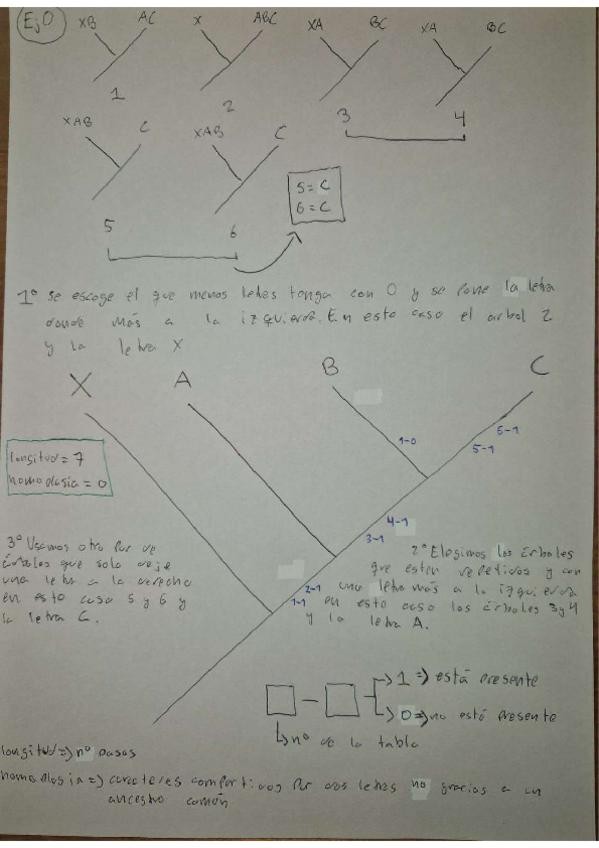 EjO
XB AC X ABC XA BC XA BC
1 2 3 4
XAB C XAB C
5 6
5 = C
6 = C
1º se escoge el que menos letras tenga con 0 y se pone la letra
donde más a la izquierda. En este caso el arbol 2
y la letra X
X A B C
1-0
5-1
5-1
longitud = 7
homoplasia = 0
4-1
3-1
3º Usamos otro par de
árboles que solo deje
una letra a la derecha
en este caso 5 y 6 y
la letra C.
2º Elegimos los árboles
que esten repetidos y con
una letra más a la izquierda
en este caso los árboles 3 y 4
y la letra A.
2-1
1-1
1 => está presente
0 => no está presente
nº de la tabla
longitud => nº pasos
homoplasia => caracteres compartidos por dos letras no gracias a un
ancestro común